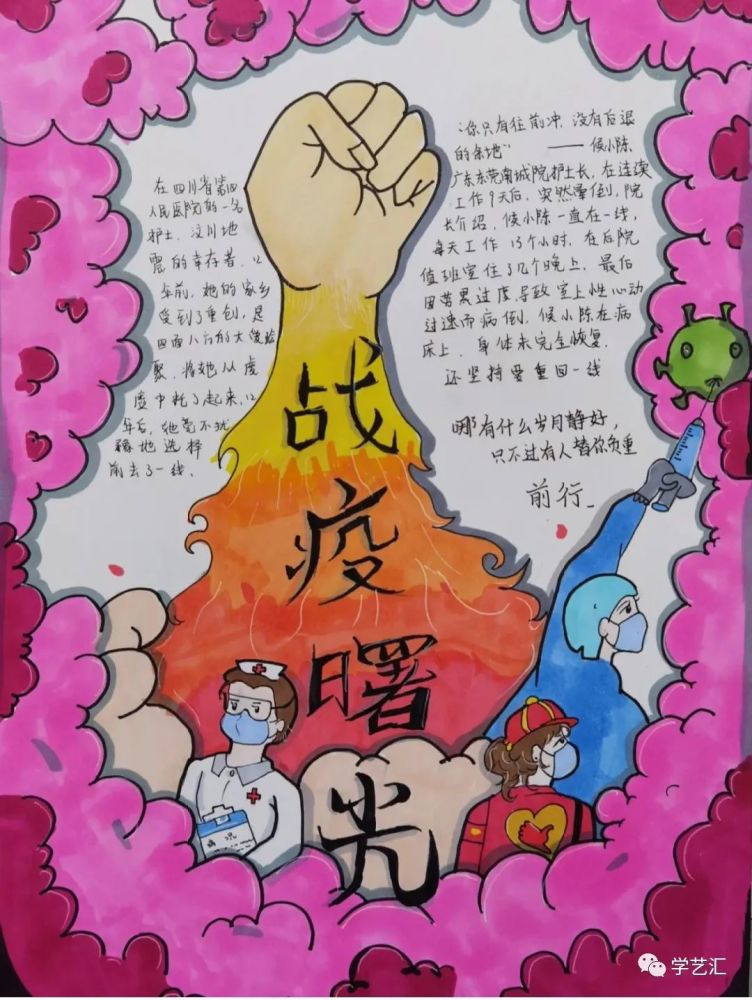 战
疫
曙
光
在四川省第四
人民医院的一名
护士，汶川地
震的幸存者，12
年前，她的家乡
受到了重创，是
四面八方的大爱凝
聚，将她从废
墟中托了起来，12
年后，她毫不犹
豫地选择
前去了一线。
"你只有往前冲，没有后退
的余地" ——候小陈
广东东莞南城院护士长，在连续
工作9天后，突然晕倒，院
长介绍，候小陈一直在一线，
每天工作13个小时，在后院
值班室住了几个晚上，最后
因劳累过度，导致室上性心动
过速而病倒，候小陈在病
床上，身体未完全恢复，
还坚持要重回一线
哪有什么岁月静好，
只不过有人替你负重
前行_
病况
学艺汇